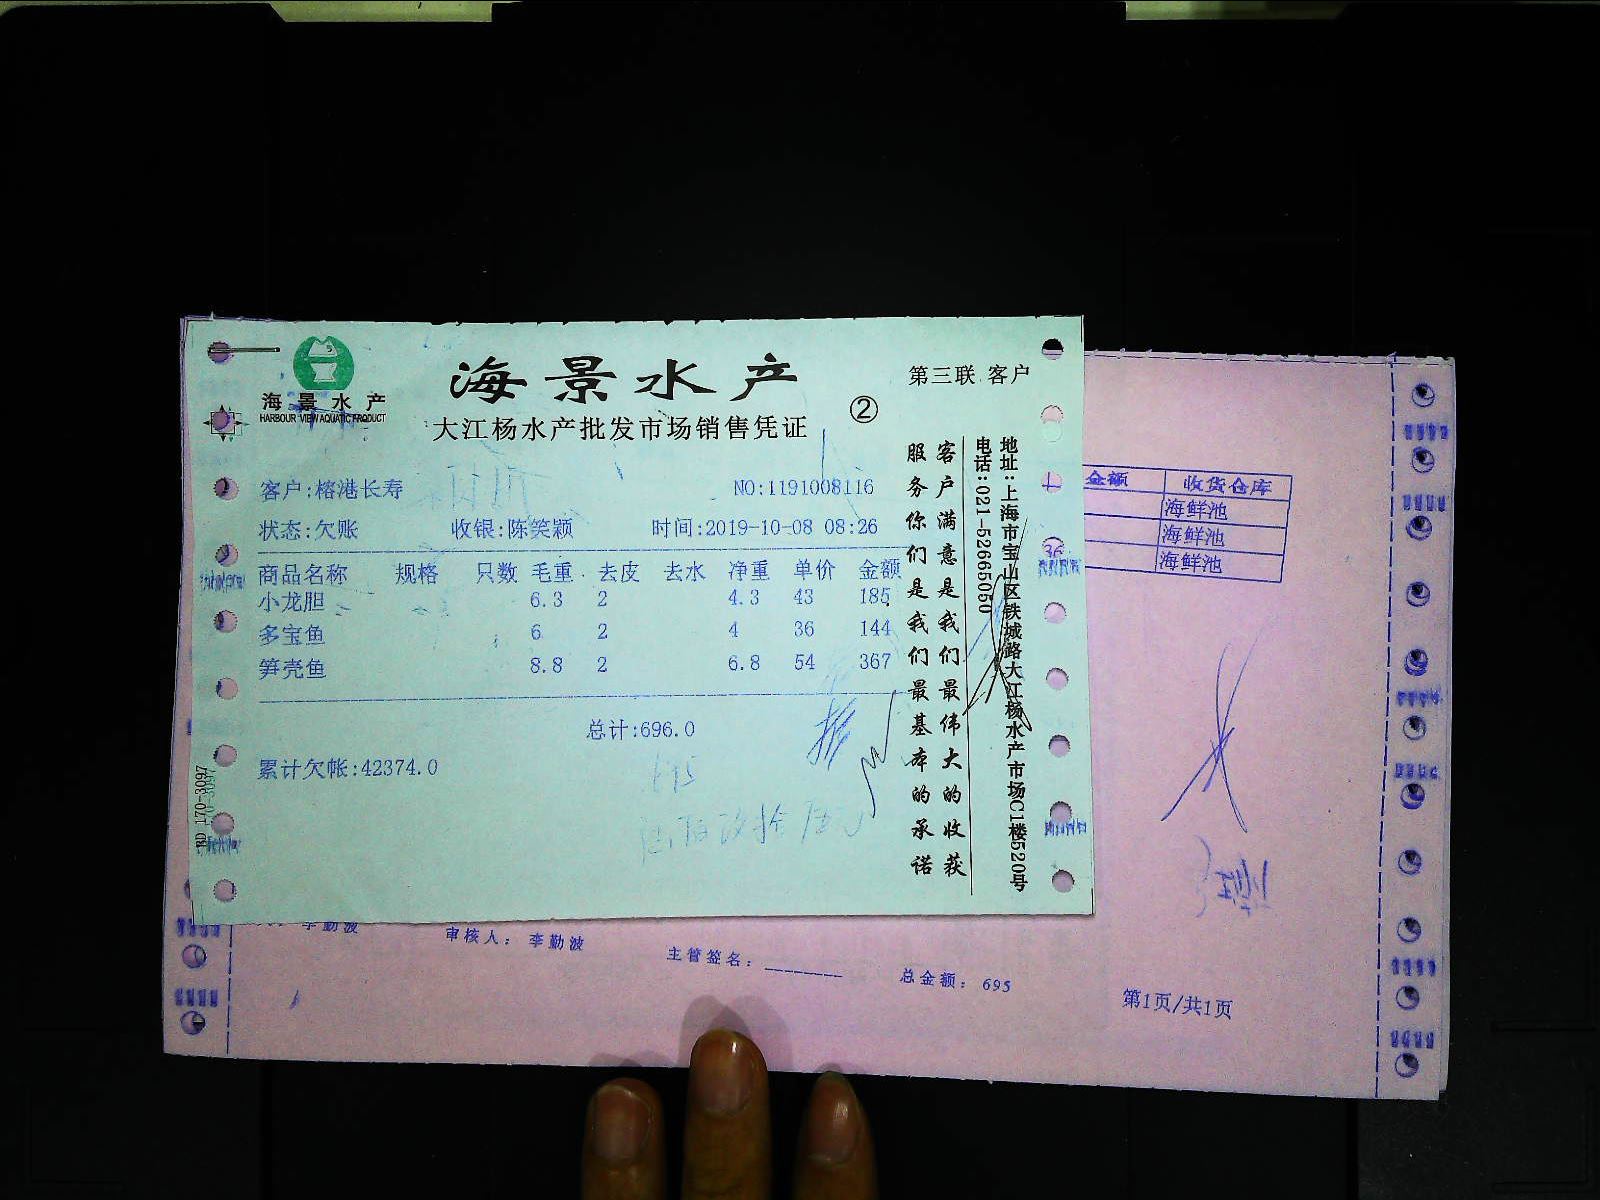 海景水产
HARBOUR VIEW AQUATIC PRODUCT
海景水产
第三联 客户
大江杨水产批发市场销售凭证
②
客户:榕港长寿 NO:1191008116
状态:欠账 收银:陈笑颖 时间:2019-10-08 08:26
商品名称 规格 只数 毛重 去皮 去水 净重 单价 金额
小龙胆 6.3 2 4.3 43 185
多宝鱼 6 2 4 36 144
笋壳鱼 8.8 2 6.8 54 367
总计:696.0
累计欠帐:42374.0
695
客户满意是我们最伟大的收获
服务你们是我们最基本的承诺
地址:上海市宝山区铁城路大江杨水产市场C1楼520号
电话:021-52665050
BD 170-3097
金额 收货仓库
海鲜池
海鲜池
海鲜池
36
李勤波
审核人: 李勤波
主管签名:________
总金额: 695
第1页/共1页